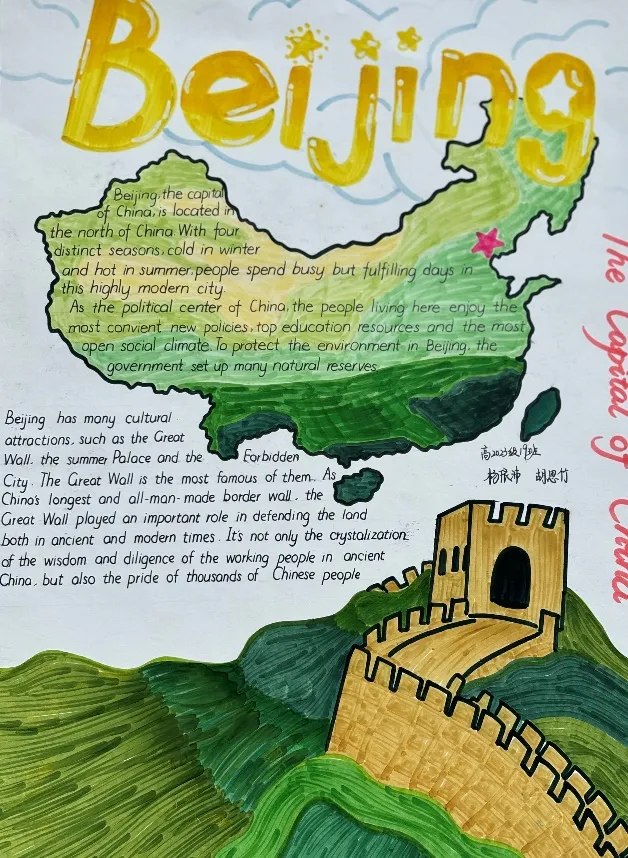 Beijing
Beijing, the capital
of China, is located in
the north of China. With four
distinct seasons, cold in winter
and hot in summer, people spend busy but fulfilling days in
this highly modern city.
As the political center of China, the people living here enjoy the
most convient new policies, top education resources and the most
open social climate. To protect the environment in Beijing, the
government set up many natural reserves.
Beijing has many cultural
attractions, such as the Great
Wall, the summer Palace and the Forbidden
City. The Great Wall is the most famous of them. As
China's longest and all-man-made border wall, the
Great Wall played an important role in defending the land
both in ancient and modern times. It's not only the crystalization
of the wisdom and diligence of the working people in ancient
China, but also the pride of thousands of Chinese people
高2023级19班
胡思竹
The Capital of China